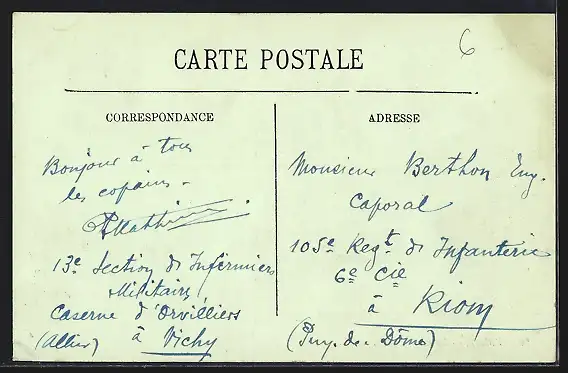 6
CARTE POSTALE
CORRESPONDANCE
Bonjour à tous
les copains -
13e Section de Infirmiers
Militaires
Caserne d'Orvilliers
à Vichy
(Allier)
ADRESSE
Monsieur Berthon Eug.
Caporal
105e Regt de Infanterie
6e Cie
à Riom
(Puy-de-Dôme)